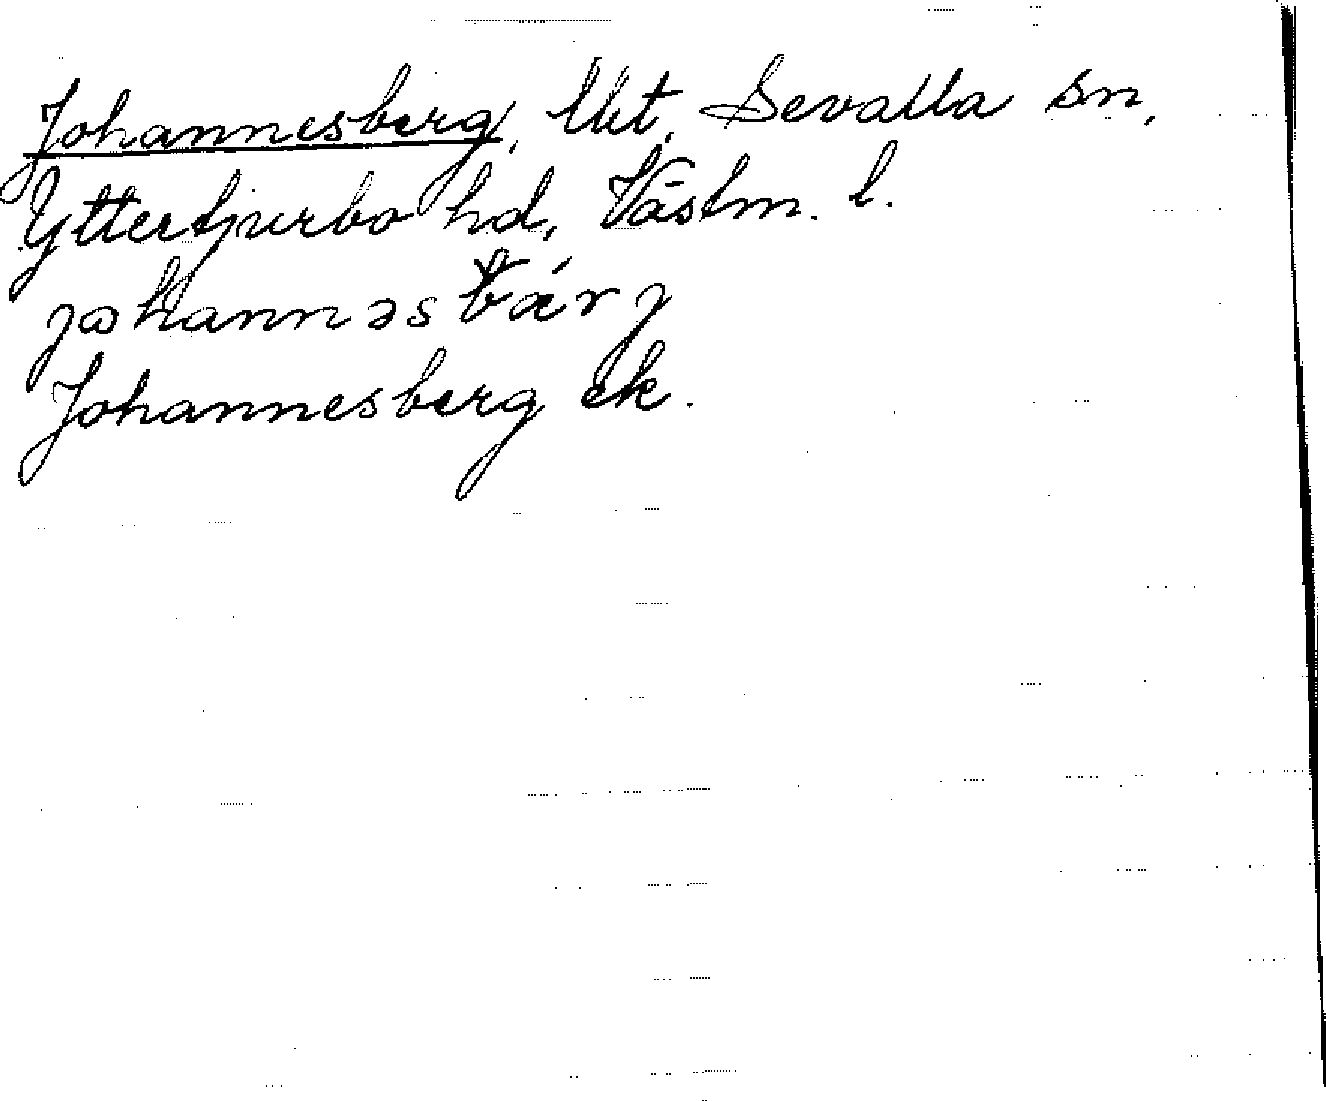 Johannesberg, lht, Sevalla sn,
Yttertjurbo hd, Västm. l.
johannəsbær̀j
Johannesberg ek.